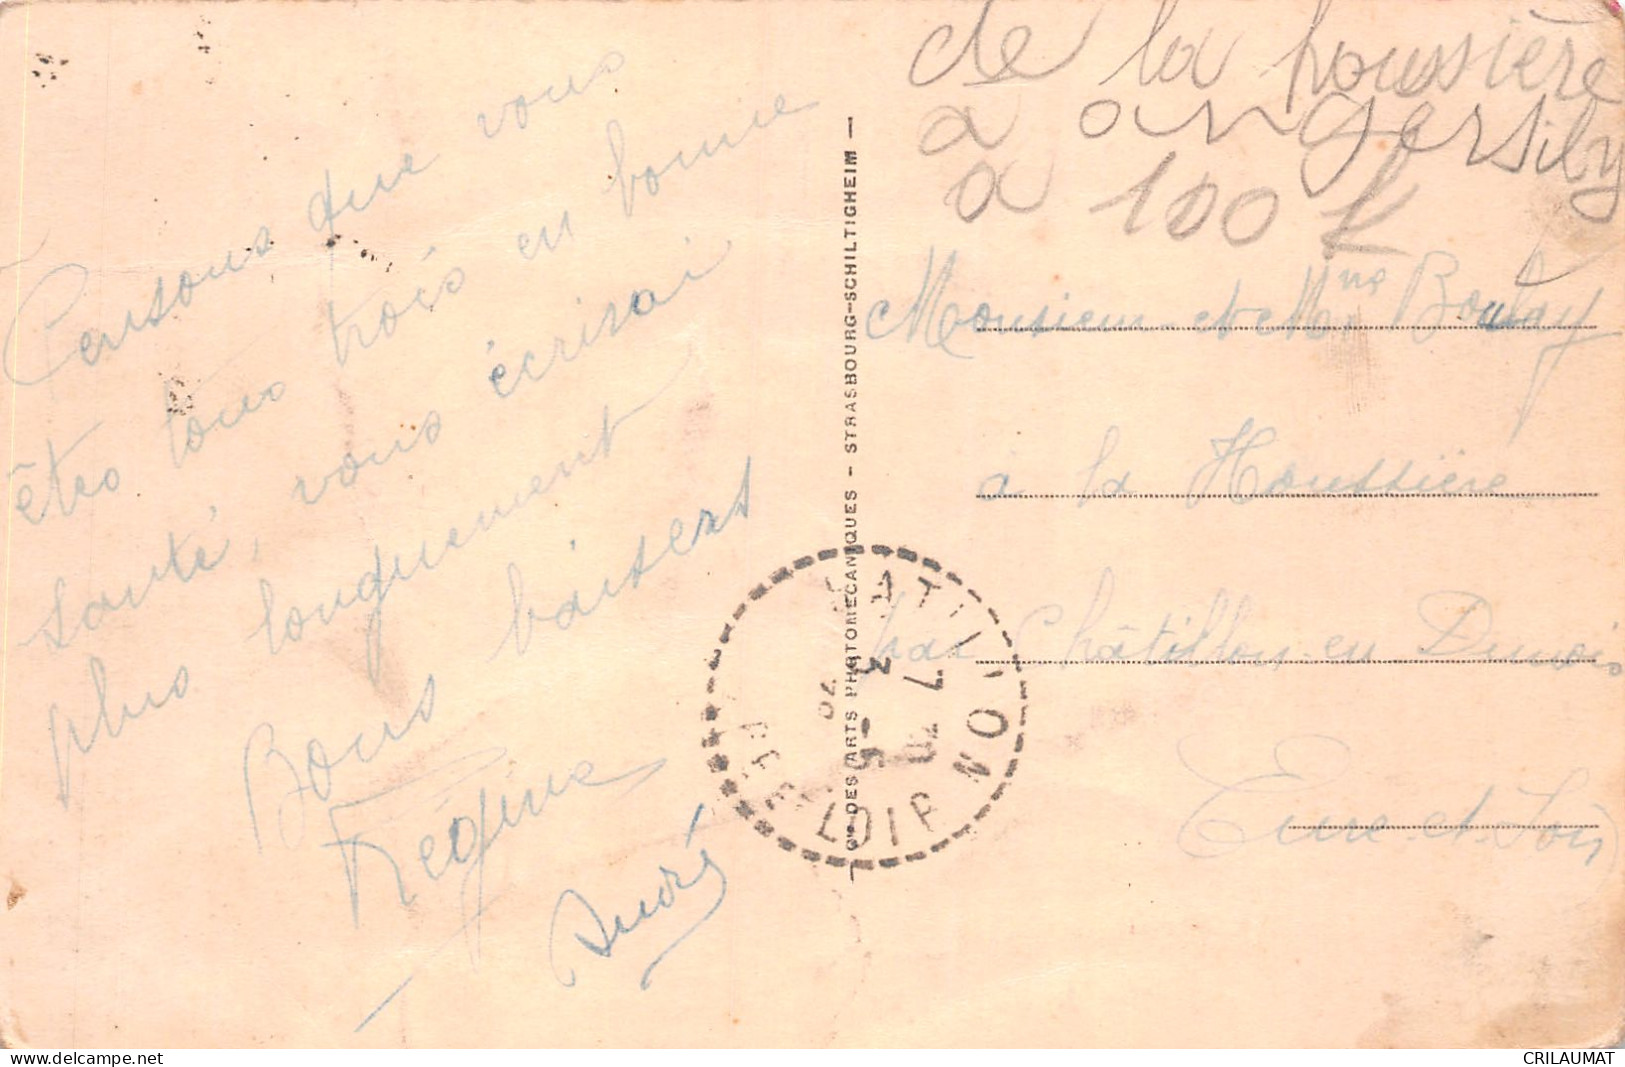 Pensons que vous
êtes tous trois en bonne
santé, vous écrirai
plus longuement
Bons baisers
Régine
André
Cie DES ARTS PHOTOMECANIQUES - STRASBOURG-SCHILTIGHEIM
de la houssière
a angersily
a 100 K
Monsieur et Mme Boulay
à la Houssière
par Châtillon-en Dunois
Eure-et-Loir
CHATILLON
7 - 5
3
EURE ET LOIR
www.delcampe.net
CRILAUMAT